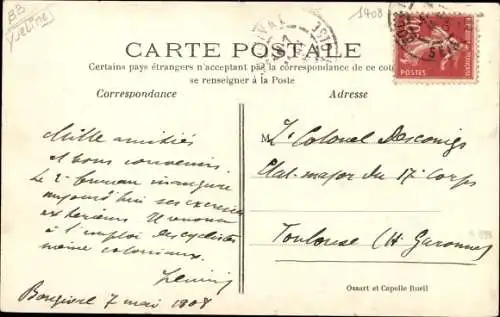 BB
Yveline
1908
CARTE POSTALE
Certains pays étrangers n'acceptent pas la correspondance de ce cô
se renseigner à la Poste
Correspondance
Adresse
POSTES
Mille amitiés
et bons souvenirs.
Le 2e bureau inaugure
aujourd'hui ses exercices
extérieurs. Il
à l'emploi des cyclistes
même coloniaux.
7 mai 1908
M
Lt Colonel Descoings
Etat-major du 17e Corps
Toulouse (Hte Garonne)
Ossart et Capelle Rueil